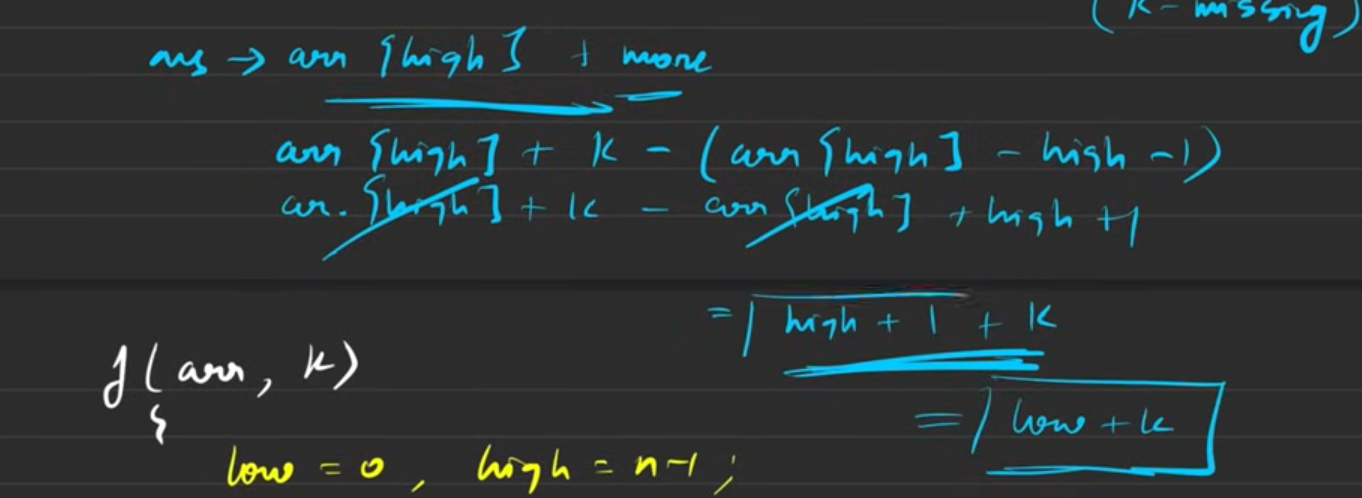 (k - missing)
ans → arr [high] + more
arr [high] + k - (arr [high] - high - 1)
ar. [high] + k - arr [high] + high + 1
= high + 1 + k
= low + k
f(arr, k)
{
low = 0, high = n-1;